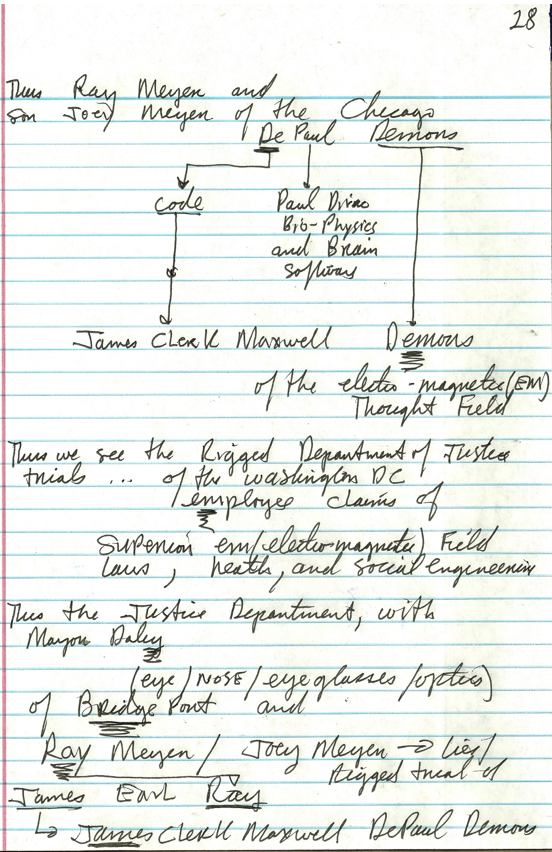 28
Thus Ray Meyer and
son Joey Meyer of the Chicago
De Paul Demons
code Paul Dirac
Bio-Physics
and Brain
Software
James Clerk Maxwell Demons
of the electro-magnetic (EM)
Thought Field
Thus we see the Rigged Department of Justice
trials ... of the Washington DC
employee claims of
Superior em/electro-magnetic) Field
laws, health, and social engineering
Thus the Justice Department, with
Mayor Daley
(eye/NOSE/eyeglasses/optics)
of Bridge Port and
Ray Meyer / Joey Meyer → lies/
Rigged trial of
James Earl Ray
↳ James Clerk Maxwell DePaul Demons